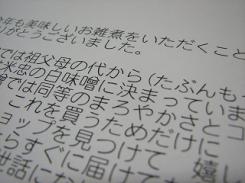 年も美味しいお雑煮をいただくこと
りがとうございました。
では祖父母の代から(たぶんも
米忠の白味噌に決まっていま
では同等のまろやかさとコ
これを買うためだけに
ョップを見つけて 嬉し
らすぐに届けても
世話にな